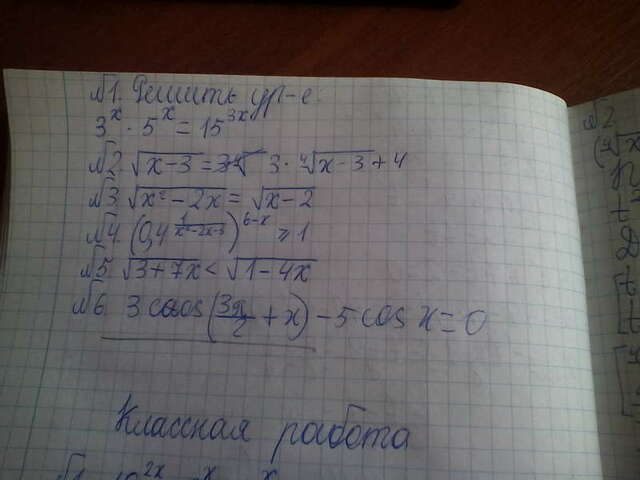 №1. Решить ур-е:
3^x · 5^x = 15^{3x}
№2. √(x-3) = 3 · ⁴√(x-3) + 4
№3. √(x²-2x) = √(x-2)
№4. (0,4^{1/(x²-2x-3)})^{6-x} ≥ 1
№5. √(3+7x) < √(1-4x)
№6. 3 cos(3π/2 + x) - 5 cos x = 0
Классная работа
№2